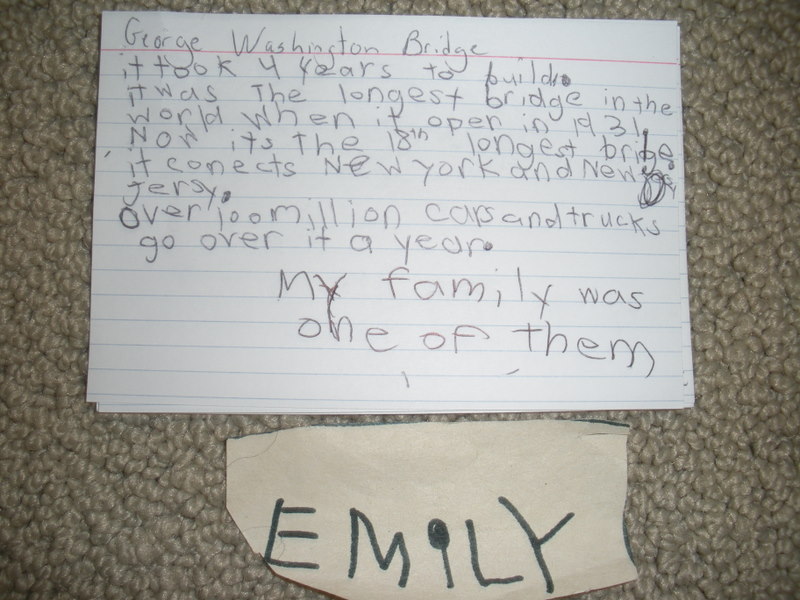 George Washington Bridge
it took 4 years to build.
it was The longest bridge in the
world when it open in 1931.
Now its The 18th longest brige.
it conects New york and New
jersy.
Over 100 million cars and trucks
go over it a year.
My family was
one of them
EMiLY